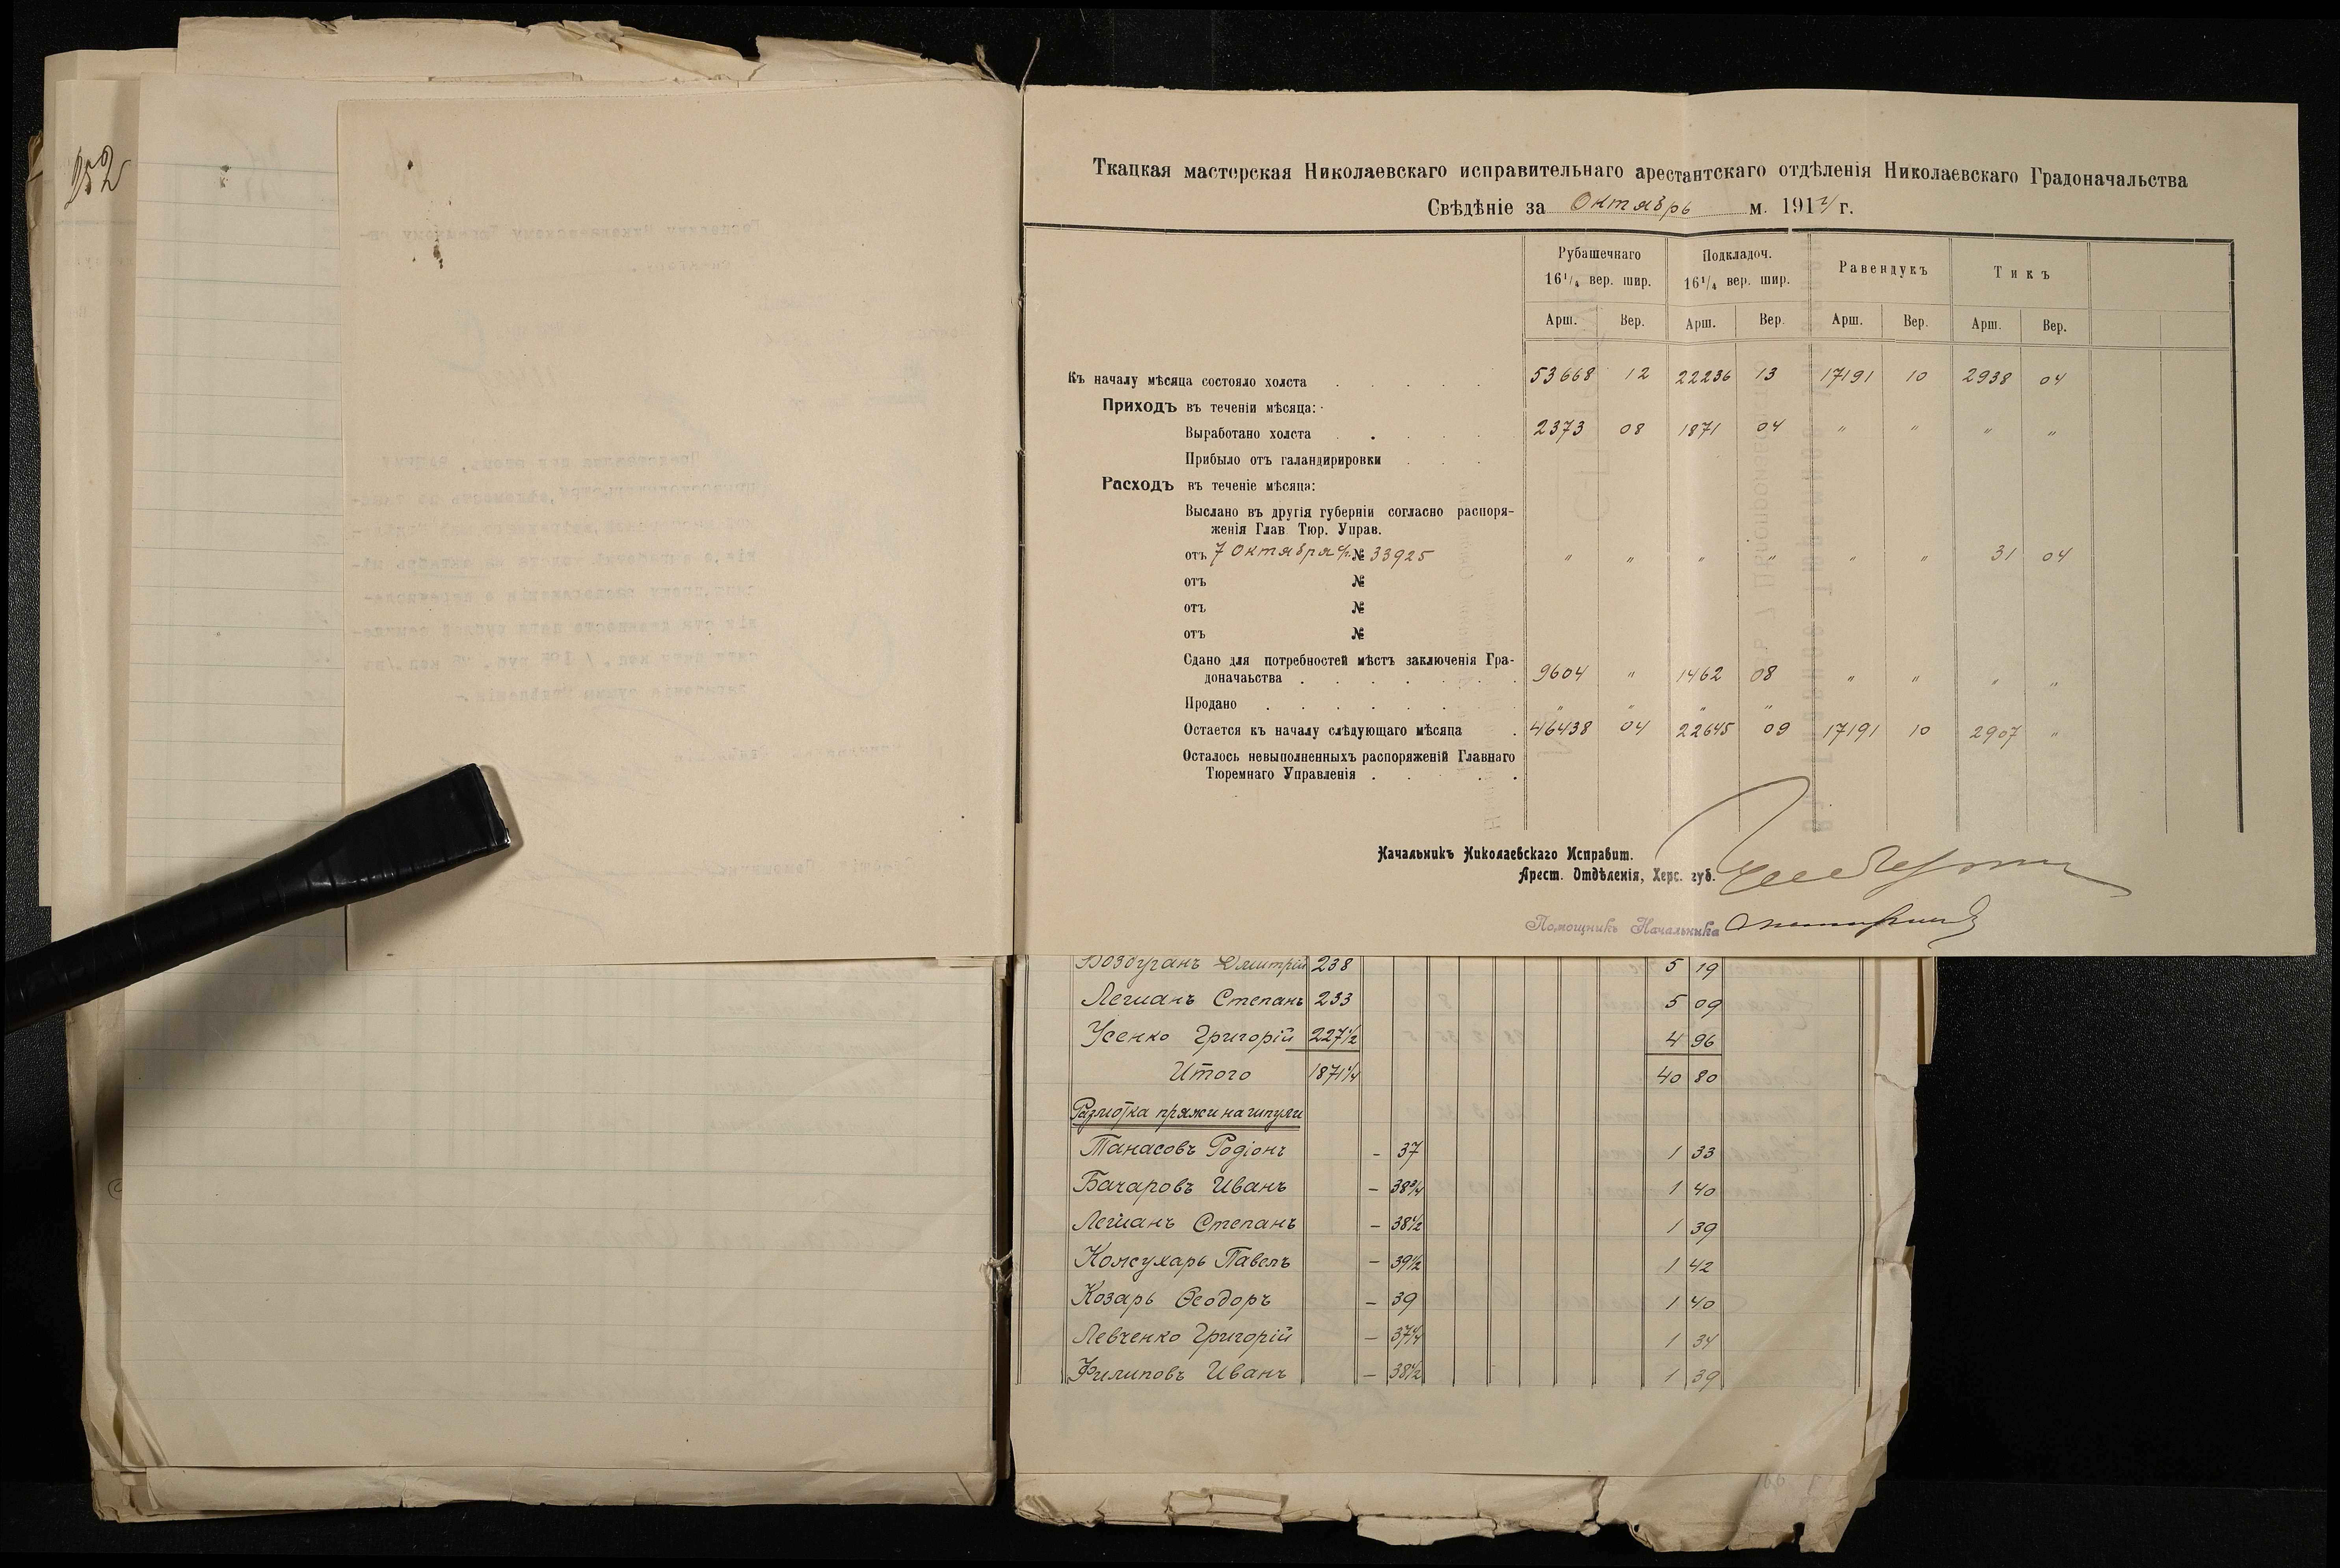 252
Ткацкая мастерская Николаевскаго исправительнаго арестантскаго отдѣленія Николаевскаго Градоначальства
Свѣдѣніе за Октябрь м. 1914 г.
Рубашечнаго 16¹/₄ вер. шир. Подкладоч. 16¹/₄ вер. шир. Равендукъ Тикъ
Арш. Вер. Арш. Вер. Арш. Вер. Арш. Вер.
Къ началу мѣсяца состояло холста 53668 12 22236 13 17191 10 2938 04
Приходъ въ теченіи мѣсяца:
Выработано холста 2373 08 1871 04 " " " "
Прибыло отъ галандирировки
Расходъ въ теченіе мѣсяца:
Выслано въ другія губерніи согласно распоря-
женія Глав. Тюр. Управ.
отъ 7 Октября с/г. № 33925 " " " " " " 31 04
отъ №
отъ №
отъ №
Сдано для потребностей мѣстъ заключенія Гра-
доначаьства 9604 " 1462 08 " " " "
Продано " " " "
Остается къ началу слѣдующаго мѣсяца 46438 04 22645 09 17191 10 2907 "
Осталось невыполненныхъ распоряженій Главнаго
Тюремнаго Управленія
Начальникъ Николаевскаго Исправит.
Арест. Отдѣленія, Херс. губ.
Помощникъ Начальника
Бозбуганъ Дмитрій 238 5 19
Легианъ Степанъ 233 5 09
Усенко Григорій 227½ 4 96
Итого 1871¼ 40 80
Размотка пряжи на шпули
Танасовъ Родіонъ - 37 1 33
Бачаровъ Иванъ - 38¾ 1 40
Легианъ Степанъ - 38½ 1 39
Кожухарь Павелъ - 39½ 1 42
Козарь Ѳеодоръ - 39 1 40
Левченко Григорій - 37¼ 1 34
Филиповъ Иванъ - 38½ 1 39